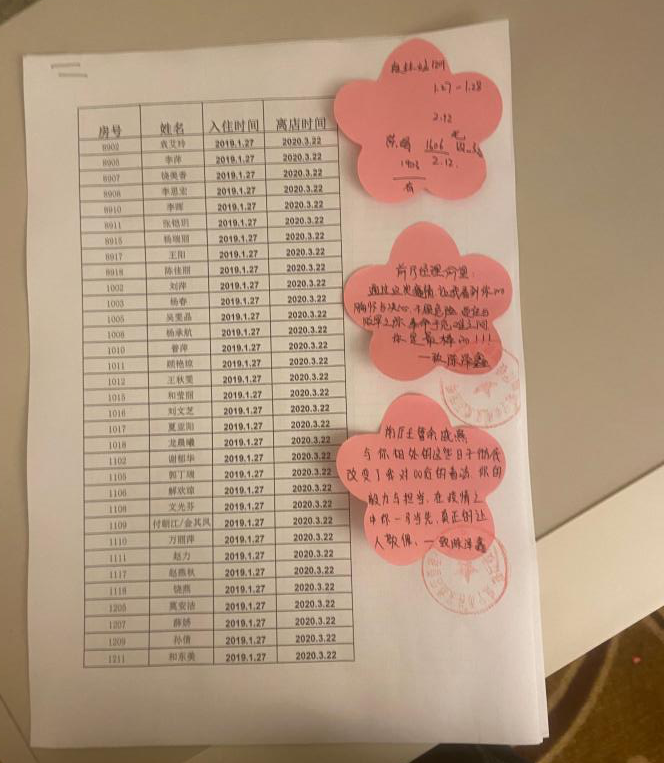 房号 姓名 入住时间 离店时间
8902 袁艾玲 2019.1.27 2020.3.22
8905 李萍 2019.1.27 2020.3.22
8907 饶美香 2019.1.27 2020.3.22
8908 李思宏 2019.1.27 2020.3.22
8910 李晖 2019.1.27 2020.3.22
8911 张艳玥 2019.1.27 2020.3.22
8915 杨瑞丽 2019.1.27 2020.3.22
8917 王阳 2019.1.27 2020.3.22
8918 陈佳丽 2019.1.27 2020.3.22
1002 刘萍 2019.1.27 2020.3.22
1003 杨春 2019.1.27 2020.3.22
1005 吴雯晶 2019.1.27 2020.3.22
1008 杨承航 2019.1.27 2020.3.22
1010 普萍 2019.1.27 2020.3.22
1011 顾艳琼 2019.1.27 2020.3.22
1012 王秋雯 2019.1.27 2020.3.22
1015 和莹丽 2019.1.27 2020.3.22
1016 刘文芝 2019.1.27 2020.3.22
1017 夏亚阳 2019.1.27 2020.3.22
1018 龙晨曦 2019.1.27 2020.3.22
1102 谢郁华 2019.1.27 2020.3.22
1105 郭丁瑞 2019.1.27 2020.3.22
1106 解欢琼 2019.1.27 2020.3.22
1108 文光芬 2019.1.27 2020.3.22
1109 付朝江/金其凤 2019.1.27 2020.3.22
1110 万丽萍 2019.1.27 2020.3.22
1111 赵力 2019.1.27 2020.3.22
1117 赵燕秋 2019.1.27 2020.3.22
1118 饶燕 2019.1.27 2020.3.22
1205 莫安洁 2019.1.27 2020.3.22
1207 薛娇 2019.1.27 2020.3.22
1209 孙倩 2019.1.27 2020.3.22
1211 和东美 2019.1.27 2020.3.22
1.27-1.28
2.12
1606
2.12.
有
前厅经理
通过这次疫情 让我看到你的
你是最棒的!!!
一致陈泽鑫
前厅主管余晓燕
与你相处的这些日子彻底
改变了我对00后的看法.你的
毅力与担当.在疫情之
中你一马当先,真正的让
人敬佩、一致陈泽鑫